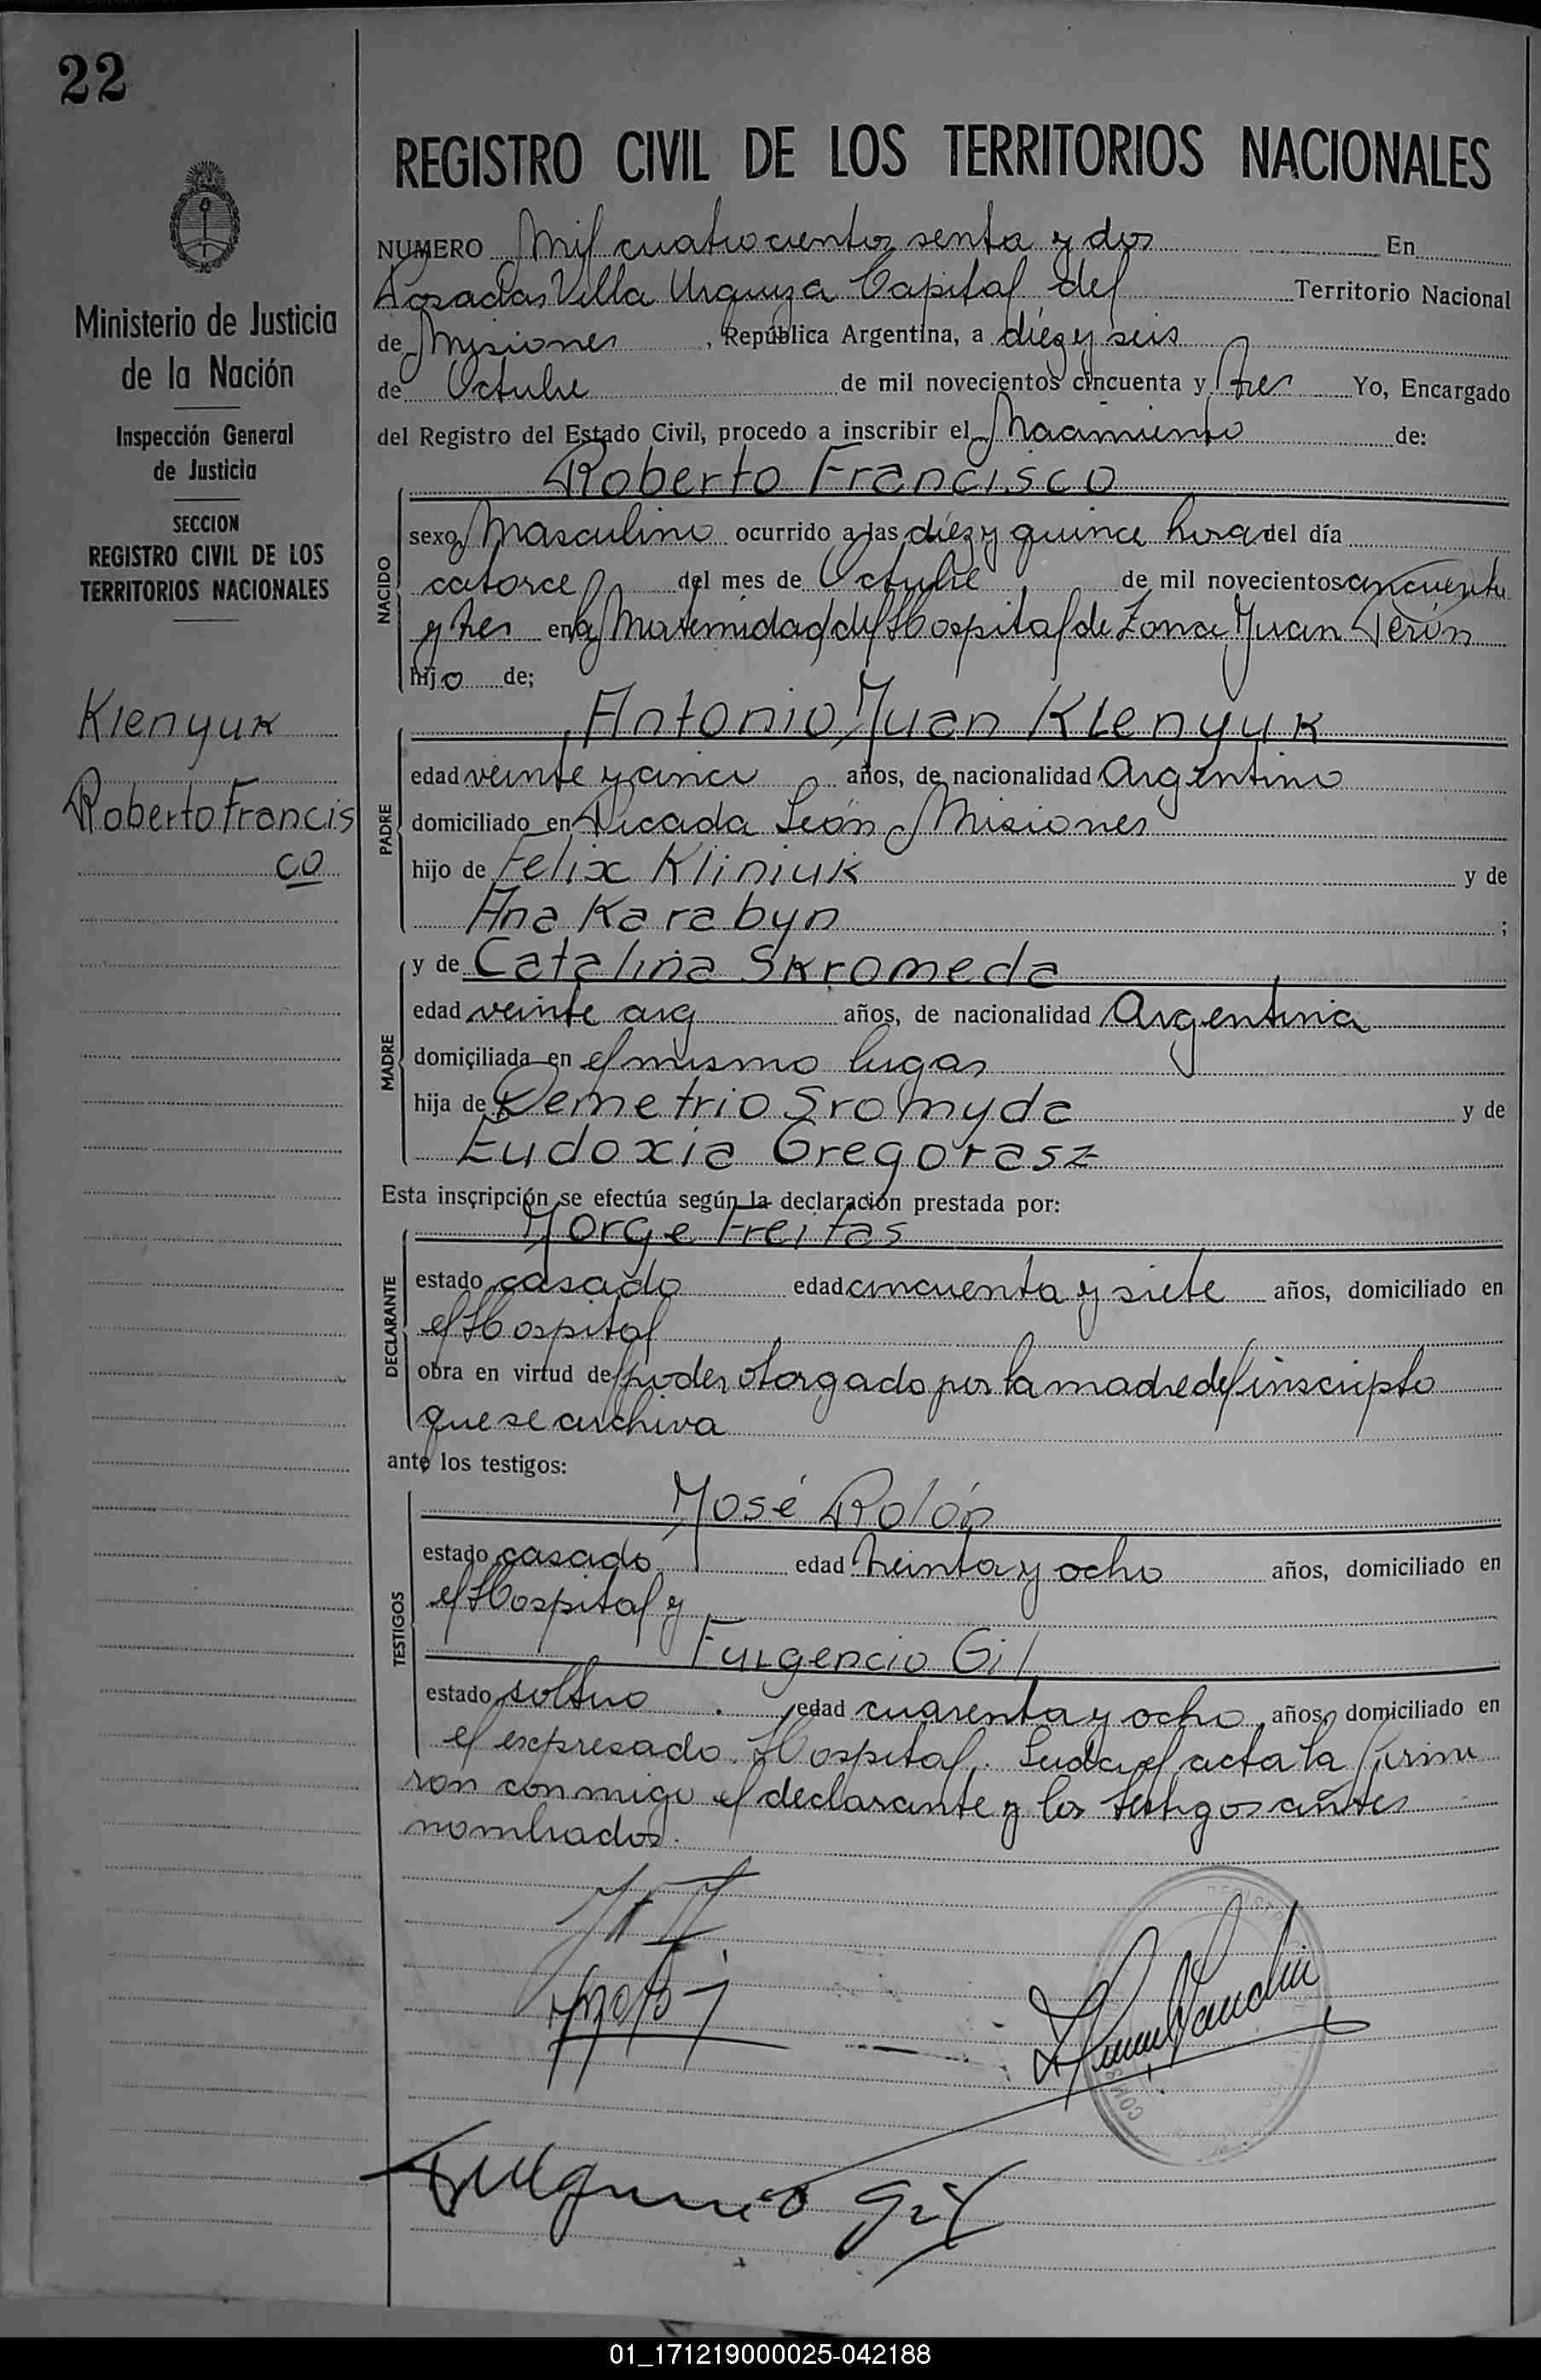 22
Ministerio de Justicia
de la Nación
Inspección General
de Justicia
SECCION
REGISTRO CIVIL DE LOS
TERRITORIOS NACIONALES
Klenyuk
Roberto Francis
co
REGISTRO CIVIL DE LOS TERRITORIOS NACIONALES
NUMERO Mil cuatrocientos senta y dos En
Posadas Villa Urquiza Capital del Territorio Nacional
de Misiones, República Argentina, a diez y seis
de Octubre de mil novecientos cincuenta y tres Yo, Encargado
del Registro del Estado Civil, procedo a inscribir el Nacimiento de:
Roberto Francisco
NACIDO
sexo Masculino ocurrido a las diez y quince horas del día
catorce del mes de Octubre de mil novecientos cincuenta
y tres en la Maternidad del Hospital de Zona Juan Perón
hijo de;
Antonio Juan Klenyuk
PADRE
edad veinte y cinco años, de nacionalidad Argentino
domiciliado en Picada León Misiones
hijo de Felix Kliniuk y de
Ana Karabyn;
MADRE
y de Catalina Skromeda
edad veinte años, de nacionalidad Argentina
domiciliada en el mismo lugar
hija de Demetrio Sromyda y de
Eudoxia Gregorasz
Esta inscripción se efectúa según la declaración prestada por:
Jorge Freitas
DECLARANTE
estado casado edad cincuenta y siete años, domiciliado en
el Hospital
obra en virtud del poder otorgado por la madre del inscripto
que se archiva
ante los testigos:
José Rolón
TESTIGOS
estado casado edad treinta y ocho años, domiciliado en
el Hospital y
Fulgencio Gil
estado soltero edad cuarenta y ocho años, domiciliado en
el expresado Hospital. Leida el acta la firma
ron conmigo el declarante y los testigos antes
nombrados.
Fulgencio Gil
01_171219000025-042188